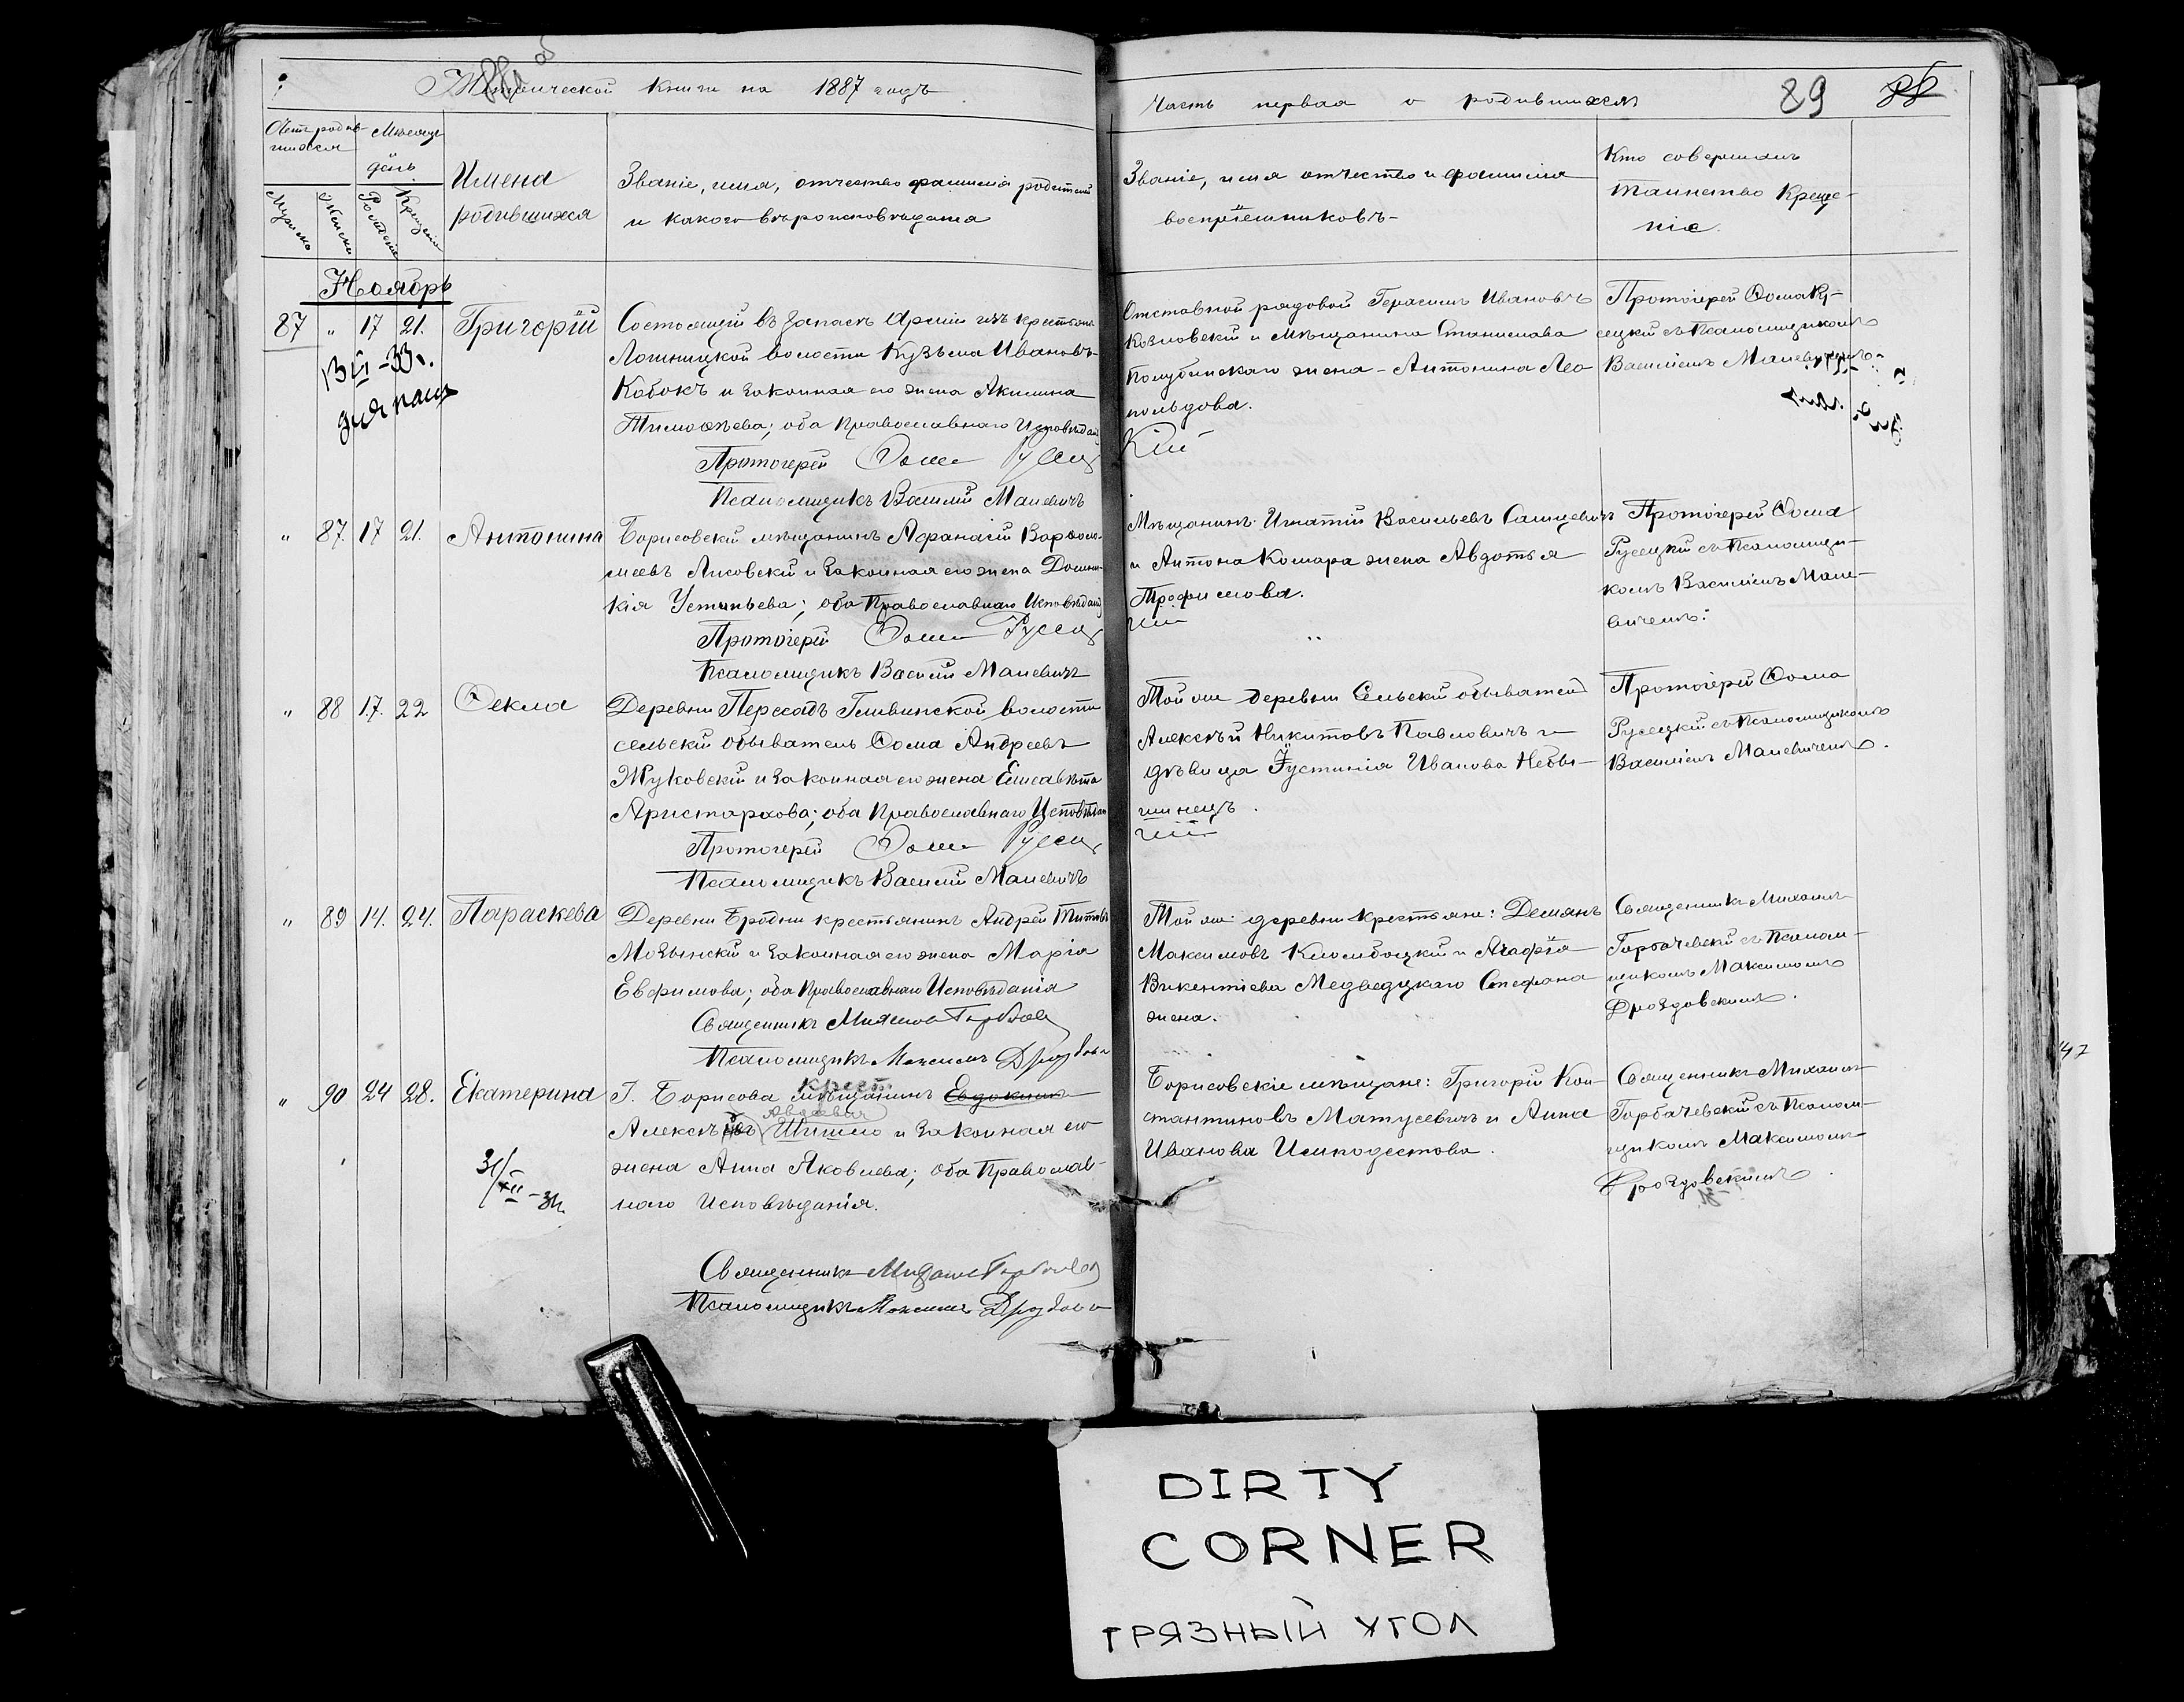 Метрической книги на 1887 годъ
Часть первая о родившихся 89
Счетъ родив-
шихся
Мѣсяцъ
день
Мужеска
Женска
Рожденія
Крещенія
Имена
родившихся
Званіе, имя, отчество фамилія родителей
и какого вѣроисповѣданія
Званіе, имя отчество и фамилія
воспріемниковъ
Кто совершалъ
таинство Креще-
нія.
Ноябрь
87 " 17 21. Григорій
Состоящій въ запасѣ Арміи изъ крестьянъ
Лошницкой волости Кузьма Ивановъ
Кобокъ и законная его жена Акилина
Тимоѳѣева; оба Православнаго Исповѣданія
Протоіерей Ѳома Русец
кій
Псаломщикъ Василій Малевичъ
Отставной рядовой Герасимъ Ивановъ
Козловскій и мѣщанина Станислава
Голубинскаго жена - Антонина Лео
польдова.
Протоіерей Ѳома Ру-
сецкій съ Псаломщикомъ
Василіемъ Малевичемъ
" 87. 17 21. Антонина
Борисовскій мѣщанинъ Афанасій Варѳоло-
меевъ Лисовскій и законная его жена Домни-
кія Устиньева; оба Православнаго Исповѣданія
Протоіерей Ѳома Русец
кій
Псаломщикъ Василій Малевичъ
Мѣщанинъ Игнатій Васильевъ Сашцевичъ
и Антона Комара жена Авдотья
Трофимова.
Протоіерей Ѳома
Русецкій съ Псаломщи-
комъ Василіемъ Мале-
вичемъ.
" 88 17. 22 Ѳекла
Деревни Пересадъ Гливинской волости
сельскій обыватель Ѳома Андреевъ
Жуковскій и законная его жена Елисавѣта
Аристархова; оба Православнаго Исповѣдан
Протоіерей Ѳома Русец
кій
Псаломщикъ Василій Малевичъ
Той же деревни Сельскій обыватель
Алексѣй Никитовъ Павловичъ и
дѣвица Іустинія Иванова Небы-
шинецъ.
Протоіерей Ѳома
Русецкій съ Псаломщикомъ
Василіемъ Малевичемъ.
" 89 14. 24. Параскева
Деревни Бродни крестьянинъ Андрей Титовъ
Мозынскій и законная его жена Марія
Евфимова; оба Православнаго Исповѣданія
Священникъ Михаилъ Горбачев
Псаломщикъ Максимъ Дроздовск
Той же деревни крестьяне: Демьянъ
Максимовъ Кломбоцкій и Агафія
Викентіева Медвецкаго Стефана
жена.
Священникъ Михаилъ
Горбачевскій съ Псалом-
щикомъ Максимомъ
Дроздовскимъ.
" 90 24 28. Екатерина
Г. Борисова мѣщанинъ Евдокимъ
крест.
Авдѣевич
Алексѣй Шишло и законная его
жена Анна Яковлева; оба Православ-
наго Исповѣданія.
31/XII-34.
Священникъ Михаилъ Горбачев
Псаломщикъ Максимъ Дроздовск
Борисовскіе мѣщане: Григорій Кон-
стантиновъ Матусевичъ и Анна
Иванова Исиподестова.
Священникъ Михаилъ
Горбачевскій съ Псалом-
щикомъ Максимомъ
Дроздовскимъ.
47
DIRTY
CORNER
ГРЯЗНЫЙ УГОЛ